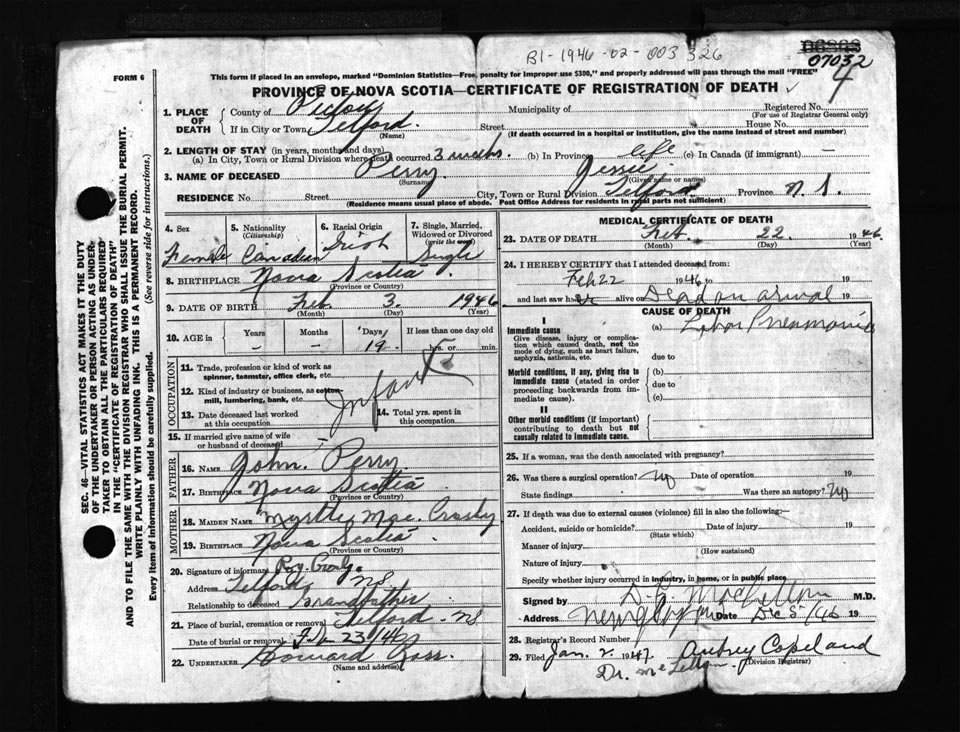 B1-1946-02-003326
07032
4
FORM 6
This form if placed in an envelope, marked "Dominion Statistics—Free, penalty for improper use $300," and properly addressed will pass through the mail "FREE"
PROVINCE OF NOVA SCOTIA—CERTIFICATE OF REGISTRATION OF DEATH
SEC. 46—VITAL STATISTICS ACT MAKES IT THE DUTY
OF THE UNDERTAKER OR PERSON ACTING AS UNDER-
TAKER TO OBTAIN ALL THE PARTICULARS REQUIRED
IN THE "CERTIFICATE OF REGISTRATION OF DEATH"
AND TO FILE THE SAME WITH THE DIVISION REGISTRAR WHO SHALL ISSUE THE BURIAL PERMIT.
WRITE PLAINLY WITH UNFADING INK. THIS IS A PERMANENT RECORD.
Every item of information should be carefully supplied. (See reverse side for instructions.)
1. PLACE OF DEATH
County of Pictou Municipality of Registered No.
(For use of Registrar General only)
If in City or Town Telford. Street House No.
(Name) (If death occurred in a hospital or institution, give the name instead of street and number)
2. LENGTH OF STAY (in years, months and days)
(a) In City, Town or Rural Division where death occurred 3 weeks. (b) In Province life (c) In Canada (if immigrant) —
3. NAME OF DECEASED Perry
(Surname) (Given name or names)
RESIDENCE No. Street City, Town or Rural Division Telford Province N.S.
(Residence means usual place of abode. Post Office Address for residents in rural parts not sufficient)
4. Sex Female
5. Nationality (Citizenship) Canadian
6. Racial Origin Irish
7. Single, Married, Widowed or Divorced (write the word) Single
8. BIRTHPLACE Nova Scotia
(Province or Country)
9. DATE OF BIRTH Feb 3 1946
(Month) (Day) (Year)
10. AGE in Years Months Days If less than one day old
— — 19 hrs. or min.
OCCUPATION
11. Trade, profession or kind of work as
spinner, teamster, office clerk, etc.
12. Kind of industry or business, as cotton-
mill, lumbering, bank, etc.
Infant
13. Date deceased last worked
at this occupation
14. Total yrs. spent in
this occupation
15. If married give name of wife
or husband of deceased
FATHER
16. NAME John Perry
17. BIRTHPLACE Nova Scotia
(Province or Country)
MOTHER
18. MAIDEN NAME Myrtle Mae Crosby
19. BIRTHPLACE Nova Scotia
(Province or Country)
20. Signature of informant Roy
Address Telford NS
Relationship to deceased Grandfather
21. Place of burial, cremation or removal Telford - NS
Date of burial or removal Feb 23/46
22. UNDERTAKER Howard Ross
(Name and address)
MEDICAL CERTIFICATE OF DEATH
23. DATE OF DEATH Feb 22 1946
(Month) (Day) (Year)
24. I HEREBY CERTIFY that I attended deceased from:
Feb 22 1946 to 19
and last saw her alive on Dead on arrival 19
CAUSE OF DEATH
I
Immediate cause
Give disease, injury or complica-
tion which caused death, not the
mode of dying, such as heart failure,
asphyxia, asthenia, etc.
(a) Lobar Pneumonia
due to
Morbid conditions, if any, giving rise to
immediate cause (stated in order
proceeding backwards from im-
mediate cause).
(b)
due to
(c)
II
Other morbid conditions (if important)
contributing to death but not
causally related to immediate cause.
25. If a woman, was the death associated with pregnancy?
26. Was there a surgical operation? No Date of operation 19
State findings Was there an autopsy? No
27. If death was due to external causes (violence) fill in also the following:—
Accident, suicide or homicide? Date of injury 19
(State which)
Manner of injury
(How sustained)
Nature of injury
Specify whether injury occurred in industry, in home, or in public place
Signed by M.D.
Address New Glasgow Date Dec 5/46 19
28. Registrar's Record Number
29. Filed Jan. 2. 1947. Aubrey Copeland
(Division Registrar)